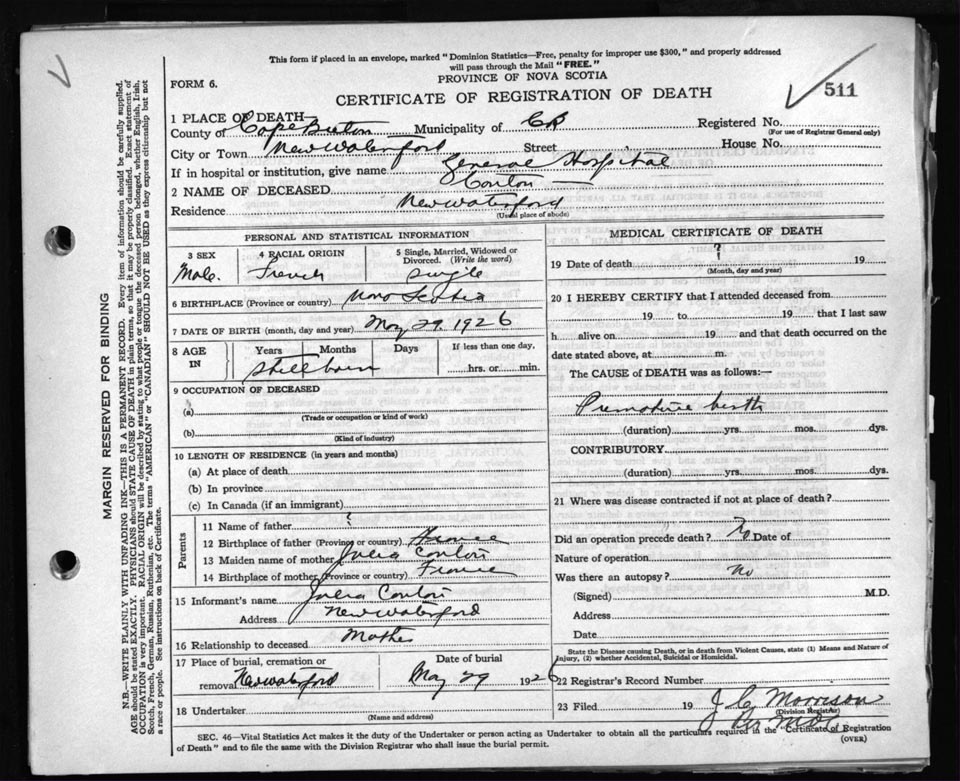 This form if placed in an envelope, marked "Dominion Statistics—Free, penalty for improper use $300," and properly addressed
will pass through the Mail "FREE."
FORM 6.
PROVINCE OF NOVA SCOTIA
CERTIFICATE OF REGISTRATION OF DEATH
511
1 PLACE OF DEATH—
County of Cape Breton Municipality of CB Registered No.
(For use of Registrar General only)
City or Town New Waterford Street House No.
If in hospital or institution, give name General Hospital
2 NAME OF DECEASED
Residence New Waterford
(Usual place of abode)
PERSONAL AND STATISTICAL INFORMATION
3 SEX 4 RACIAL ORIGIN 5 Single, Married, Widowed or
Divorced. (Write the word)
Male French Single
6 BIRTHPLACE (Province or country) Nova Scotia
7 DATE OF BIRTH (month, day and year) May 29. 1926
8 AGE IN Years Months Days If less than one day,
Stillborn hrs. or min.
9 OCCUPATION OF DECEASED
(a)
(Trade or occupation or kind of work)
(b)
(Kind of industry)
10 LENGTH OF RESIDENCE (in years and months)
(a) At place of death
(b) In province
(c) In Canada (if an immigrant)
Parents
11 Name of father ?
12 Birthplace of father (Province or country) France
13 Maiden name of mother Julia
14 Birthplace of mother (Province or country) France
15 Informant's name Julia
Address New Waterford
16 Relationship to deceased Mother
17 Place of burial, cremation or Date of burial
removal New Waterford May 29 1926
18 Undertaker
(Name and address)
MEDICAL CERTIFICATE OF DEATH
19 Date of death ? 19
(Month, day and year)
20 I HEREBY CERTIFY that I attended deceased from
19 to 19 that I last saw
h alive on 19 and that death occurred on the
date stated above, at m.
The CAUSE of DEATH was as follows:—
Premature birth
(duration) yrs. mos. dys.
CONTRIBUTORY
(duration) yrs. mos. dys.
21 Where was disease contracted if not at place of death?
Did an operation precede death? No Date of
Nature of operation
Was there an autopsy? No
(Signed) M.D.
Address
Date
State the Disease causing Death, or in death from Violent Causes, state (1) Means and Nature of
Injury, (2) whether Accidental, Suicidal or Homicidal.
22 Registrar's Record Number
23 Filed 19 Morrison
(Division Registrar)
SEC. 46—Vital Statistics Act makes it the duty of the Undertaker or person acting as Undertaker to obtain all the particulars required in the "Certificate of Registration
of Death" and to file the same with the Division Registrar who shall issue the burial permit.
(OVER)
MARGIN RESERVED FOR BINDING
N.B.—WRITE PLAINLY, WITH UNFADING INK—THIS IS A PERMANENT RECORD. Every item of information should be carefully supplied.
AGE should be stated EXACTLY. PHYSICIANS should STATE CAUSE OF DEATH in plain terms, so that it may be properly classified. Exact statement of
OCCUPATION is very important. RACIAL ORIGIN will be described by stating to what people or tongue the deceased person belonged, whether English, Irish,
Scotch, French, German, Russian, Ruthenian, etc. The terms "AMERICAN" or "CANADIAN" SHOULD NOT BE USED as they express citizenship but not
a race or people. See instructions on back of Certificate.